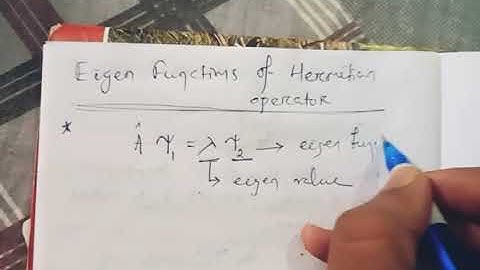 Eigen Functions of Hermitian
operator
* Â ψ₁ = λ ψ₂ → eigen fun
↳ eigen value